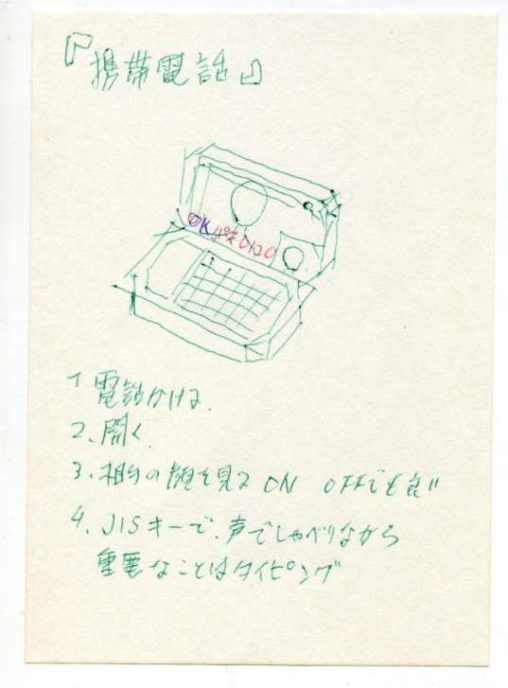 『携帯電話』
OK パス 0120
1 電話かける.
2、開く
3、相手の顔を見る ON OFFでも良い
4、JISキーで、声でしゃべりながら
重要なことはタイピング